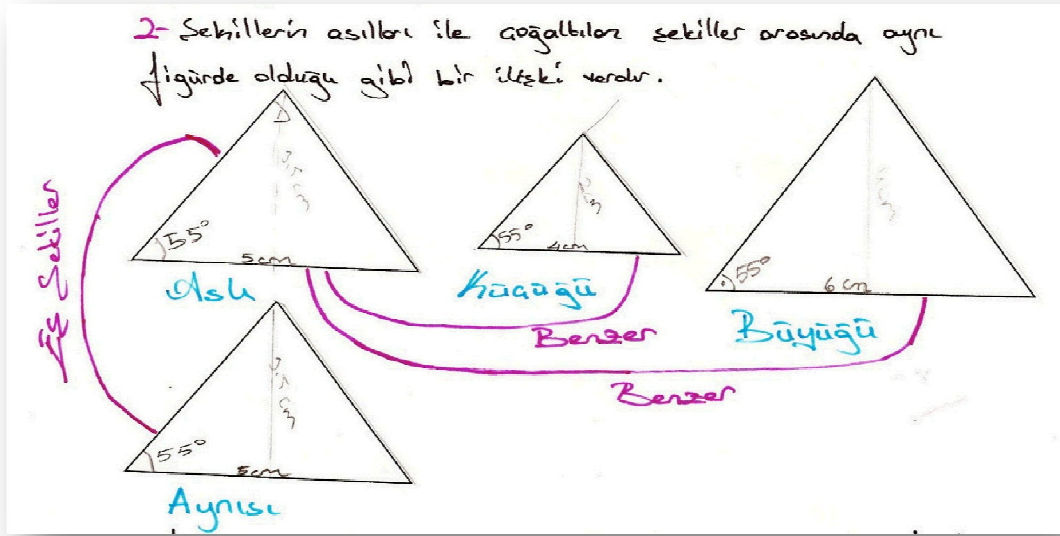 2- Şekillerin asılları ile çoğaltılan şekiller arasında aynı
figürde olduğu gibi bir ilişki vardır.
3,5 cm
55°
5cm
Aslı
2cm
55°
4cm
Küçüğü
55°
6 cm
Büyüğü
Eş Şekiller
Benzer
Benzer
3,5 cm
55°
5cm
Aynısı